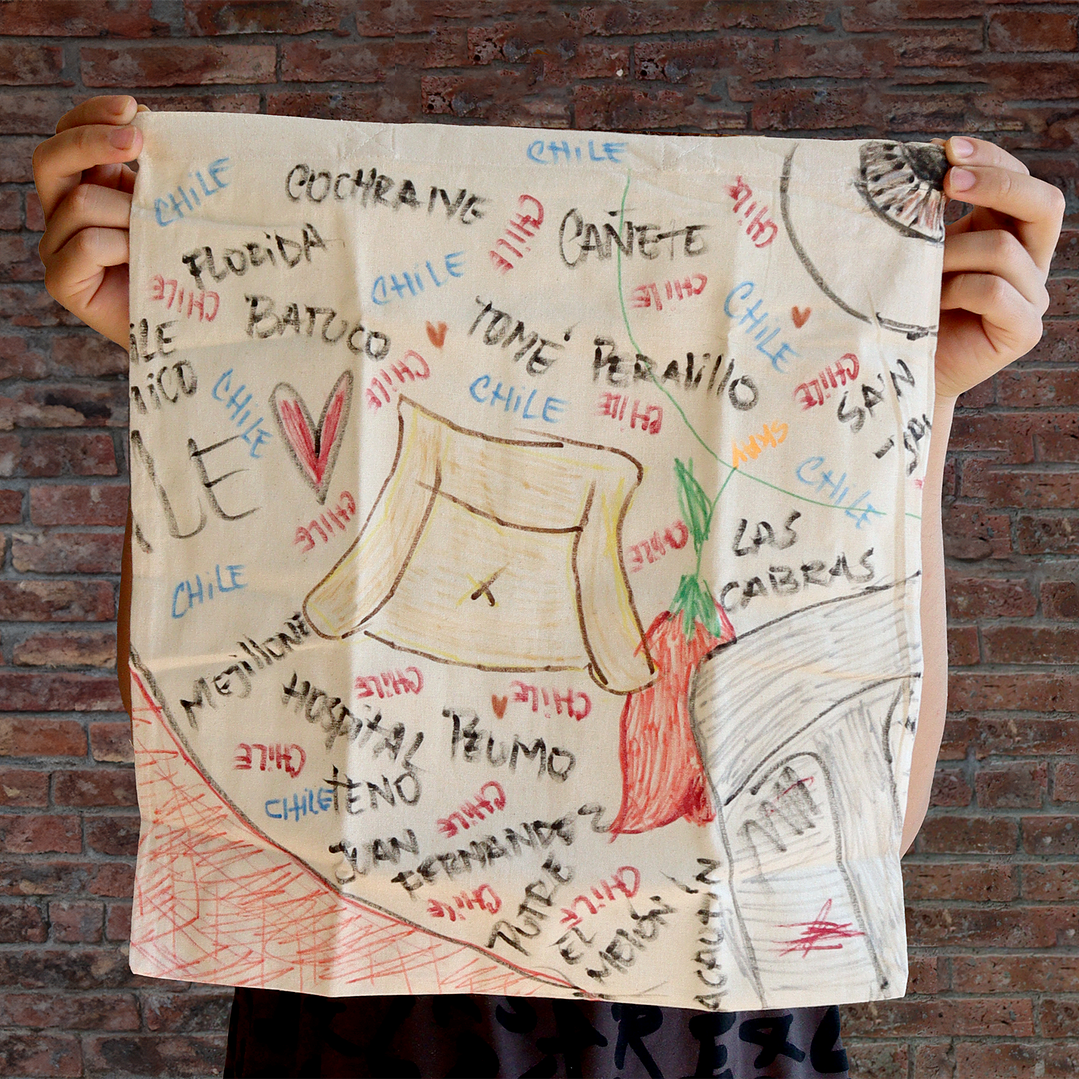 CHILE
CHILE
COCHRAINE
CHILE
CHILE
CAÑETE
FLORIDA
CHILE
CHILE
CHILE
CHILE
BATUCO
TOMÉ
CHILE
PERALILLO
CHILE
CHILE
CHILE
CHILE
CHILE
SAN
CHILE
CHILE
CHILE
CHILE
LAS
CABRAS
CHILE
Mejillone
HOSPITAL
CHILE
CHILE
PEUMO
CHILE
CHILE
TENO
CHILE
JUAN
FERNANDEZ
CHILE
PUTRE
CHILE
EL
MELÓN